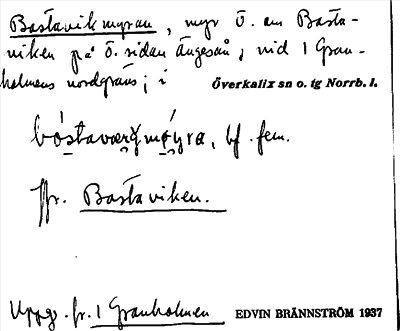 Bastavikmyran, myr ö. om Basta-
viken på ö. sidan Ängesån, vid 1 Gran-
holmens nordgräns; i Överkalix sn o. tg Norrb. l.
bó̱staværg̬mó̱yra, bf. fem.
Jfr. Bastaviken.
Uppg. fr. 1 Granholmen EDVIN BRÄNNSTRÖM 1937